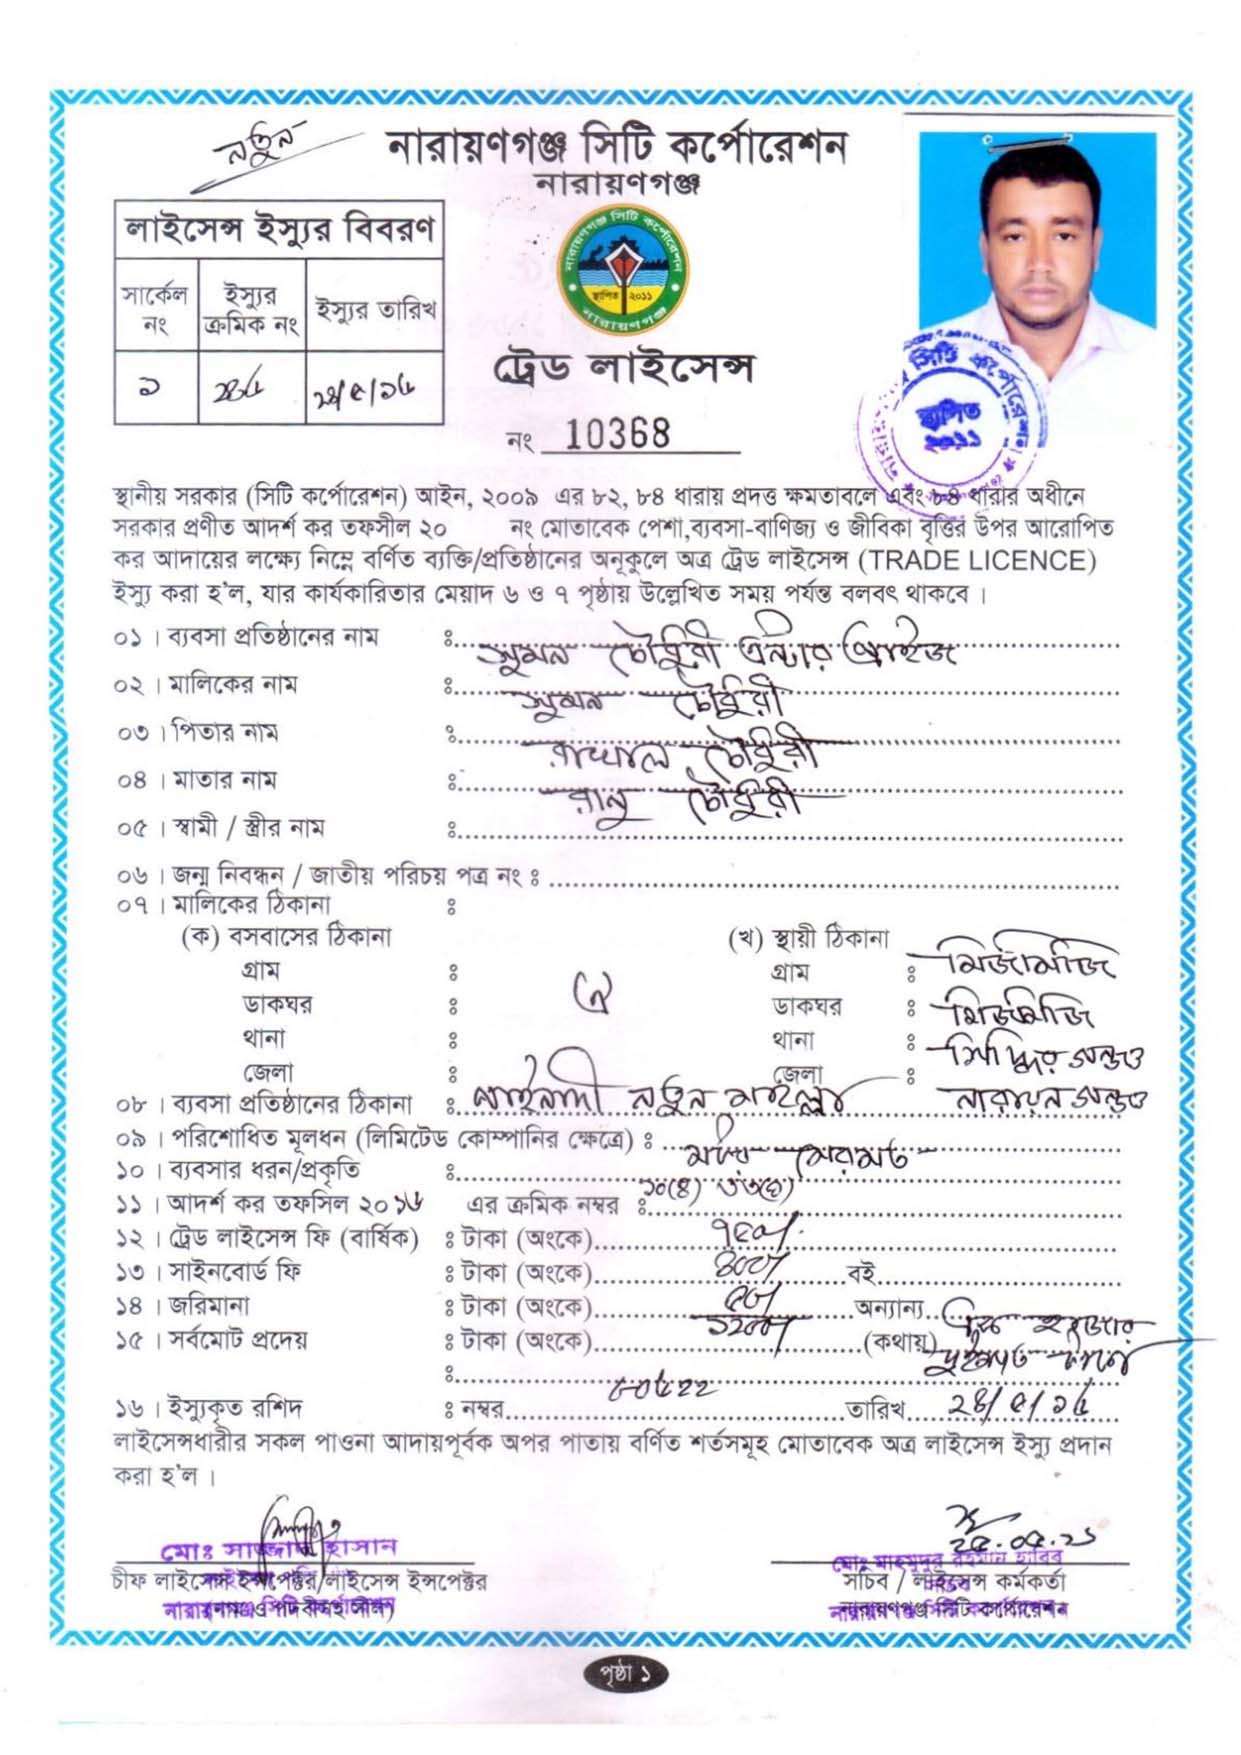 নতুন
নারায়ণগঞ্জ সিটি কর্পোরেশন
নারায়ণগঞ্জ
লাইসেন্স ইস্যুর বিবরণ
সার্কেল নং
ইস্যুর ক্রমিক নং
ইস্যুর তারিখ
১
নারায়ণগঞ্জ সিটি কর্পোরেশন
স্থাপিত ২০১১
নারায়ণগঞ্জ
ট্রেড লাইসেন্স
নং 10368
সিটি কর্পোরেশন
স্থাপিত
২০১১
স্থানীয় সরকার (সিটি কর্পোরেশন) আইন, ২০০৯ এর ৮২, ৮৪ ধারায় প্রদত্ত ক্ষমতাবলে এবং ৮৪ ধারার অধীনে
সরকার প্রণীত আদর্শ কর তফসীল ২০ নং মোতাবেক পেশা,ব্যবসা-বাণিজ্য ও জীবিকা বৃত্তির উপর আরোপিত
কর আদায়ের লক্ষ্যে নিম্নে বর্ণিত ব্যক্তি/প্রতিষ্ঠানের অনূকুলে অত্র ট্রেড লাইসেন্স (TRADE LICENCE)
ইস্যু করা হ'ল, যার কার্যকারিতার মেয়াদ ৬ ও ৭ পৃষ্ঠায় উল্লেখিত সময় পর্যন্ত বলবৎ থাকবে।
০১। ব্যবসা প্রতিষ্ঠানের নাম ঃ সুমন চৌধুরী এন্টার প্রাইজ
০২। মালিকের নাম ঃ সুমন চৌধুরী
০৩। পিতার নাম ঃ রাখাল চৌধুরী
০৪। মাতার নাম ঃ রানু চৌধুরী
০৫। স্বামী / স্ত্রীর নাম ঃ
০৬। জন্ম নিবন্ধন / জাতীয় পরিচয় পত্র নং ঃ
০৭। মালিকের ঠিকানা ঃ
(ক) বসবাসের ঠিকানা (খ) স্থায়ী ঠিকানা
গ্রাম ঃ গ্রাম ঃ মিজমিজি
ডাকঘর ঃ ঐ ডাকঘর ঃ মিজমিজি
থানা ঃ থানা ঃ সিদ্ধিরগঞ্জ
জেলা ঃ জেলা ঃ নারায়নগঞ্জ
০৮। ব্যবসা প্রতিষ্ঠানের ঠিকানা ঃ পাইনাদী নতুন মহল্লা
০৯। পরিশোধিত মূলধন (লিমিটেড কোম্পানির ক্ষেত্রে) ঃ
১০। ব্যবসার ধরন/প্রকৃতি ঃ মেরামত
১১। আদর্শ কর তফসিল ২০১৬ এর ক্রমিক নম্বর ঃ
১২। ট্রেড লাইসেন্স ফি (বার্ষিক) ঃ টাকা (অংকে) ৭৫০/-
১৩। সাইনবোর্ড ফি ঃ টাকা (অংকে) ৪০০/ বই
১৪। জরিমানা ঃ টাকা (অংকে) ৫০/ অন্যান্য
১৫। সর্বমোট প্রদেয় ঃ টাকা (অংকে) ১২০০/ (কথায়) এক হাজার
ঃ দুইশত টাকা
১৬। ইস্যুকৃত রশিদ ঃ নম্বর তারিখ ২৪/৫/১৬
লাইসেন্সধারীর সকল পাওনা আদায়পূর্বক অপর পাতায় বর্ণিত শর্তসমূহ মোতাবেক অত্র লাইসেন্স ইস্যু প্রদান
করা হ'ল।
মোঃ সাজ্জাদ হাসান
চীফ লাইসেন্স ইন্সপেক্টর/লাইসেন্স ইন্সপেক্টর
মোঃ মাহমুদুর রহমান হাবিব
সচিব / লাইসেন্স কর্মকর্তা
নারায়ণগঞ্জ সিটি কর্পোরেশন
পৃষ্ঠা ১